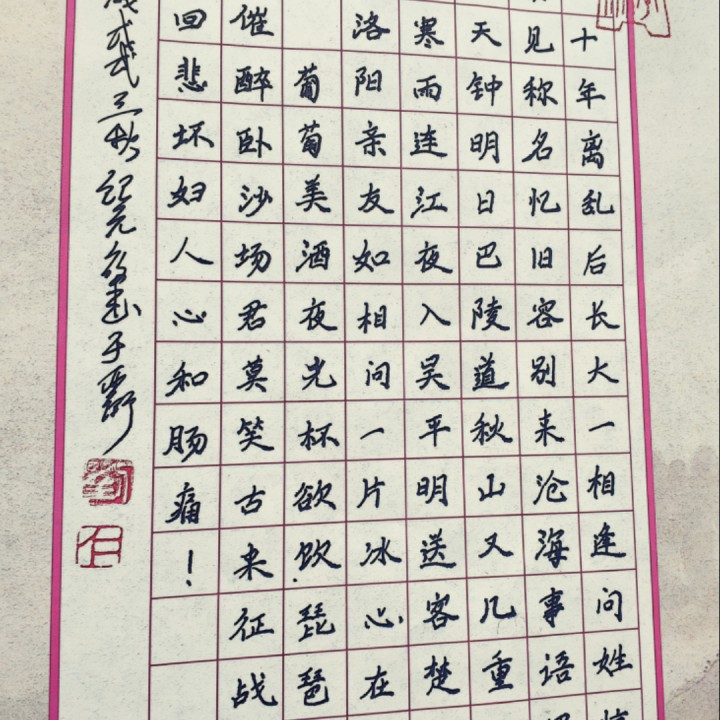 十年离乱后长大一相逢问姓
见称名忆旧容别来沧海事语
天钟明日巴陵道秋山又几重
寒雨连江夜入吴平明送客楚
洛阳亲友如相问一片冰心在
葡萄美酒夜光杯欲饮琵琶
催醉卧沙场君莫笑古来征战
回悲坏妇人心和肠痛！
三秋